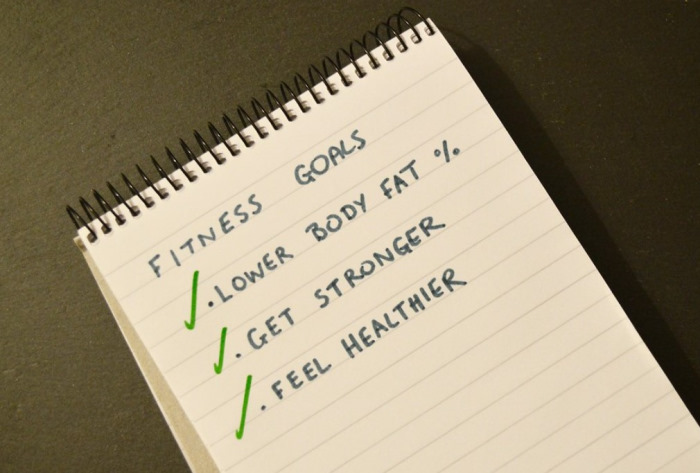 FITNESS GOALS
. LOWER BODY FAT %
. GET STRONGER
. FEEL HEALTHIER